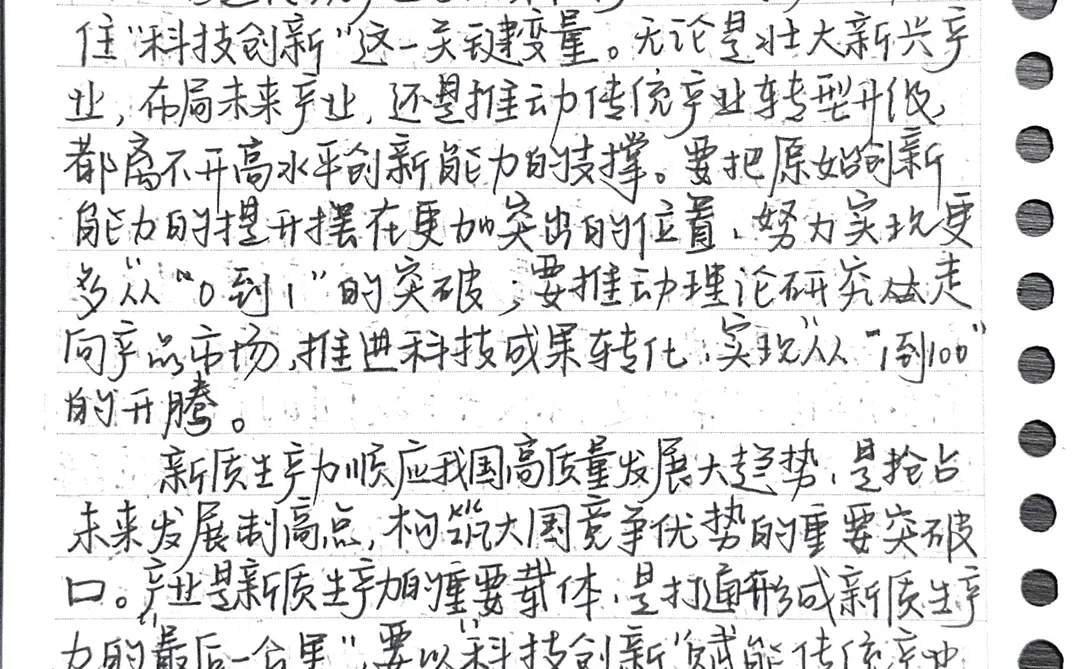 住“科技创新”这一关键变量。无论是壮大新兴产
业，布局未来产业，还是推动传统产业转型升级，
都离不开高水平创新能力的支撑。要把原始创新
能力的提升摆在更加突出的位置，努力实现更
多“从“0到1”的突破；要推动理论研究从走
向产品市场，推进科技成果转化，实现“从“1到100”
的升腾。
新质生产力顺应我国高质量发展大趋势，是抢占
未来发展制高点，构筑大国竞争优势的重要突破
口。产业是新质生产力的重要载体，是打通形成新质生产
力的“最后一公里”，要以“科技创新”赋能传统产业